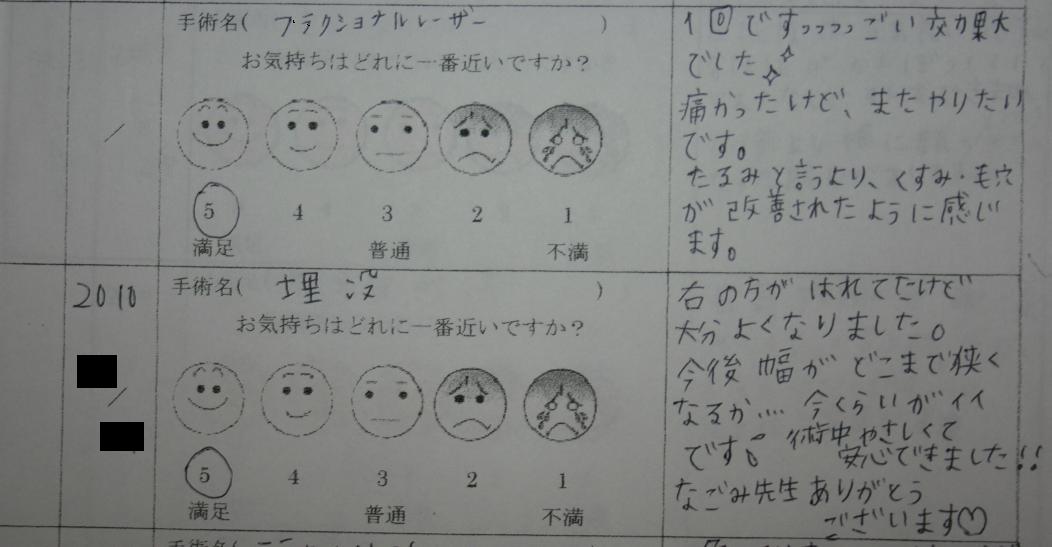 手術名( フラクショナルレーザー )
お気持ちはどれに一番近いですか？
5 4 3 2 1
満足 普通 不満
1回ですっっっっごい効果大
でした
痛かったけど、またやりたい
です。
たるみと言うより、くすみ・毛穴
が改善されたように感じ
ます。
2010
/
手術名( 埋没 )
お気持ちはどれに一番近いですか？
5 4 3 2 1
満足 普通 不満
右の方がはれてたけど
大分よくなりました。
今後幅がどこまで狭く
なるか.... 今くらいがイイ
です。 術中やさしくて
安心できました!!
なごみ先生ありがとう
ございます♡